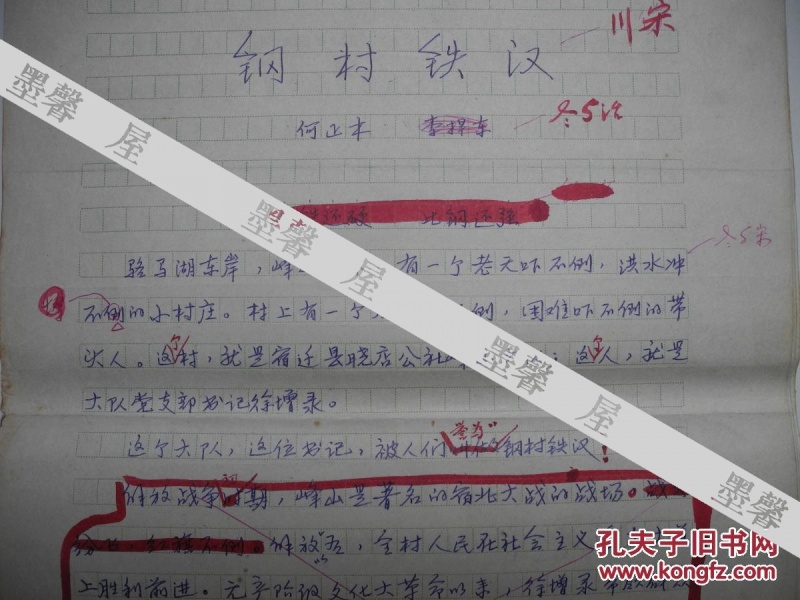 钢村铁汉
川宋
何正本
冬5注
比钢还强
骆马湖东岸，峰 有一个老天吓不倒，洪水冲
冬5宋
不倒的小村庄。村上有一个 倒，困难吓不倒的带
头人。这个村，就是宿迁县晓店公社 这个人，就是
大队党支部书记徐增录。
这个大队，这位书记，被人们誉为"钢村铁汉！
解放战争 期，峰山是著名的宿北大战的战场。
解放 后，全村人民在社会主义
上胜利前进。无产阶级文化大革命以来，徐增录
墨馨屋
墨馨屋
墨馨屋
孔夫子旧书网
www.kongfz.com